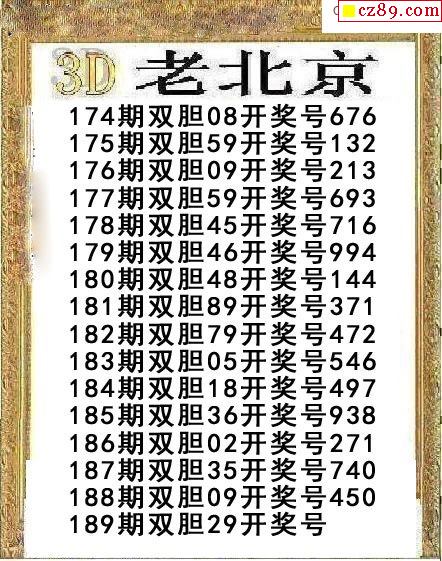 cz89.com
3D 老北京
174期双胆08开奖号676
175期双胆59开奖号132
176期双胆09开奖号213
177期双胆59开奖号693
178期双胆45开奖号716
179期双胆46开奖号994
180期双胆48开奖号144
181期双胆89开奖号371
182期双胆79开奖号472
183期双胆05开奖号546
184期双胆18开奖号497
185期双胆36开奖号938
186期双胆02开奖号271
187期双胆35开奖号740
188期双胆09开奖号450
189期双胆29开奖号